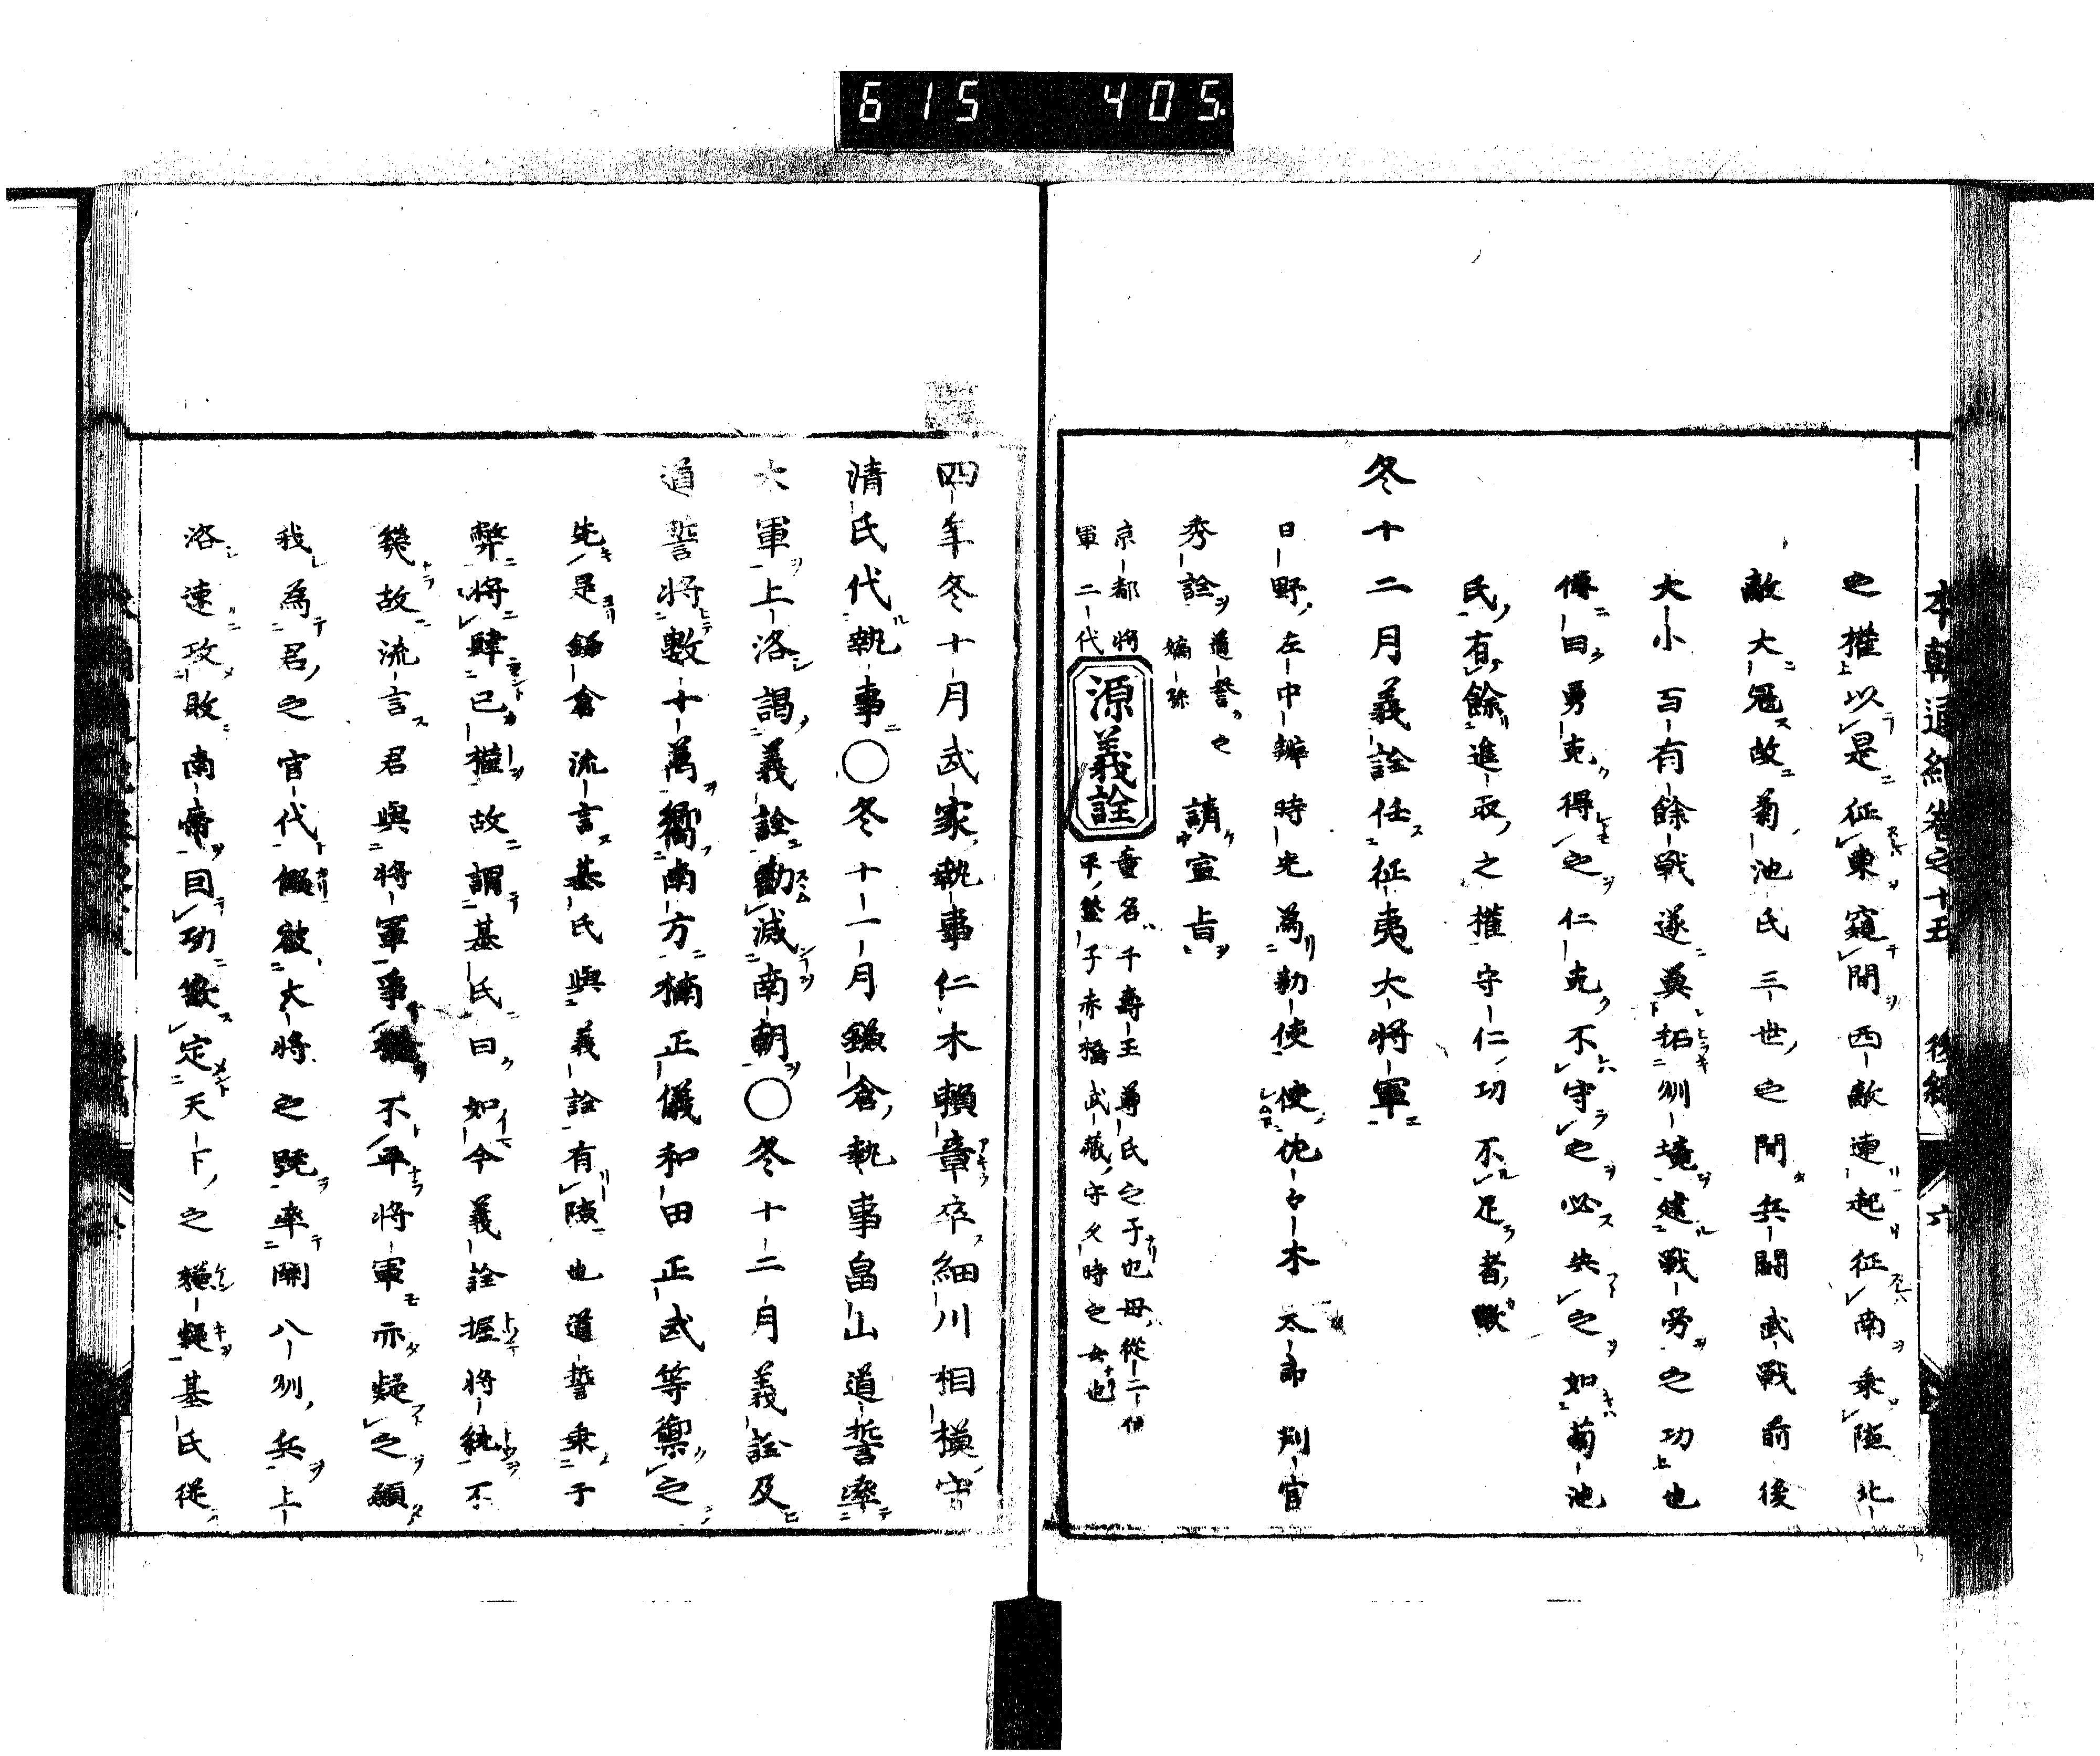 615 405
本朝通紀卷之十五 後紀 六
之權以是征東窺間西敵連起征南乘隘北
敵大冠故菊池氏三世之間兵鬪武戰前後
大小百有餘戰遂奠拓州境建戰勞之功也
傳曰勇克得之仁克不守之必失之如菊池
氏有餘進取之權守仁功不足者歟
冬十二月義詮任征夷大將軍
日野左中辨時光為勅使使佗々木太郎判官
秀詮道誉之嫡孫請宣旨
京都將軍二代
源義詮
童名千壽王尊氏之子也母從二位
平登子赤橋武藏守久時之女也
四年冬十月武家執事仁木賴章卒細川相模守
清氏代執事〇冬十一月鎌倉執事畠山道誓率
大軍上洛謁義詮勸滅南朝〇冬十二月義詮及
道誓將數十萬嚮南方楠正儀和田正武等禦之
先是鎌倉流言基氏與義詮有隙也道誓乘于
弊將肆已權故謂基氏曰如今義詮握將統不
幾故流言君與將軍爭權不平將軍亦疑之願
我為君之官代假被大將之號率關八州兵上
洛速攻敗南帝囙功徼定天下之橫疑基氏從